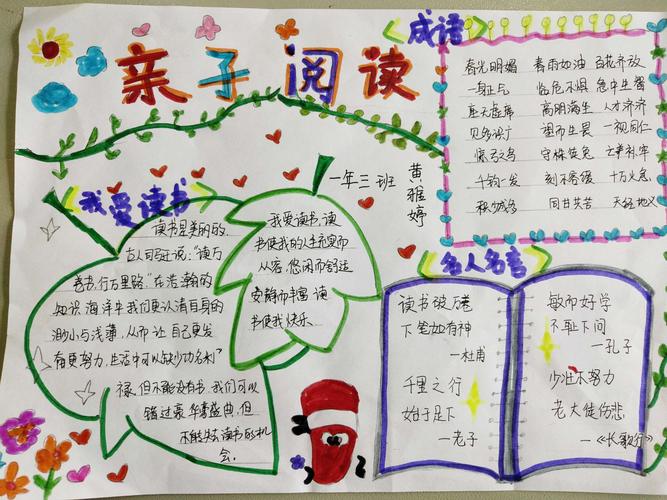 亲子阅读
成语
春光明媚 春雨如油 百花齐放
一身正气 临危不惧 急中生智
座无虚席 高朋满座 人才济济
望而生畏 一视同仁
惊弓之鸟 守株待兔 亡羊补牢
千钧一发 刻不容缓 十万火急
同甘共苦
一年三班
黄雅婷
我爱读书
读书是美丽的,
古人司迁说:"读万
卷书,行万里路."在浩瀚的
知识海洋中我们更认清自身的
渺小与浅薄,从而让自己更发
奋更努力,生活中可以缺少功名利
禄,但不能没有书.我们可以
错过豪华盛典,但
不能失去读书的机
会.
我爱读书,读
书使我的人生充实而
从容,悠闲而舒适
安静而丰富,读
书使我快乐.
名人名言
读书破万卷
下笔如有神
—杜甫
千里之行
始于足下
—老子
敏而好学
不耻下问
—孔子
少壮不努力
老大徒伤悲
—《长歌行》